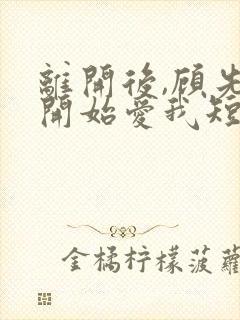 離開後,顾先
開始愛我短
金橘柠檬菠蘿